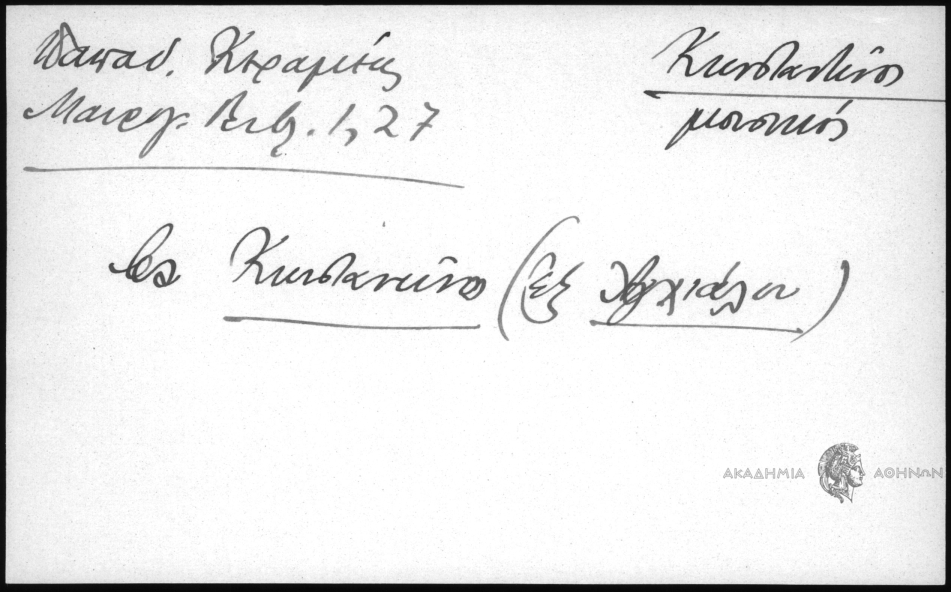 Παπαδ. Κεραμεύς
Μαυρογ. Βιβλ. 1, 27
Κωνσταντίνος
μουσικός
Κωνσταντίνος (ἐξ Ἀγχιάλου)
ΑΚΑΔΗΜΙΑ ΑΘΗΝΩΝ